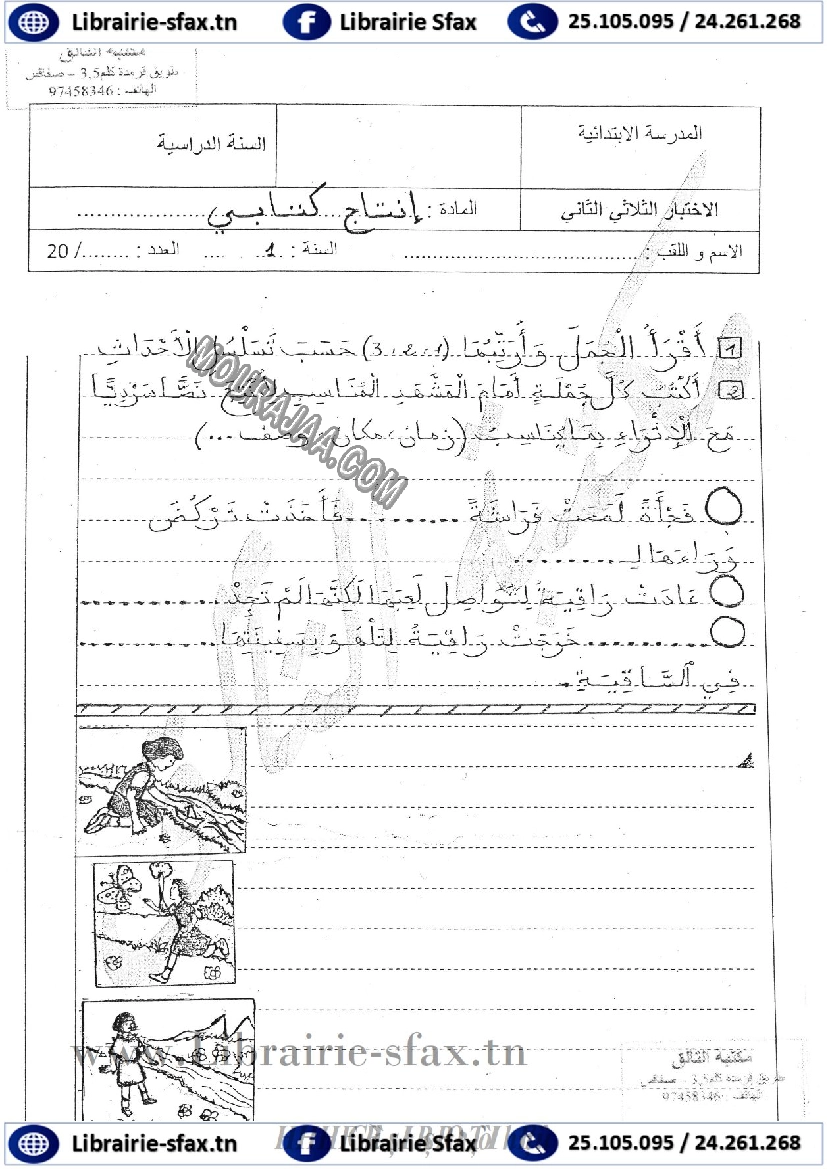 Librairie-sfax.tn Librairie Sfax 25.105.095 / 24.261.268
طريق قرمدة كلم3,5 – صفاقس
الهاتف : 97458346
المدرسة الابتدائية
السنة الدراسية
الاختبار الثلاثي الثاني
المادة : إنتاج كتابي
الاسم و اللقب : ........................................ السنة : 1 .... العدد : ......../ 20
1 أَقْرَأُ الْجُمَلَ وَأُرَتِّبُهَا (1، 2، 3) حَسَبَ تَسَلْسُلِ الْأَحْدَاثِ
2 أَكْتُبُ كُلَّ جُمْلَةٍ أَمَامَ الْمَشْهَدِ الْمُنَاسِبِ لِأُنْتِجَ نَصًّا سَرْدِيًّا
مَعَ الْإِثْرَاءِ بِمَا يُنَاسِبُ (زمان، مكان، وصف ...)
فَجْأَةً لَمَحَتْ فَرَاشَةً .......... فَأَخَذَتْ تَرْكُضُ
وَرَاءَهَا لِـ ..........
عَادَتْ رَاقِيَةُ لِتُوَاصِلَ لَعِبَهَا لَكِنَّهَا لَمْ تَجِدْ ..........
.......... خَرَجَتْ رَاقِيَةُ لِتَلْهُوَ بِسَفِينَتِهَا ..........
فِي السَّاقِيَةِ.
MOURAJAA.COM
www.librairie-sfax.tn
مكتبة التالق
طريق قرمدة كلم3,5 – صفاقس
الهاتف : 97458346
Librairie-sfax.tn Librairie Sfax 25.105.095 / 24.261.268